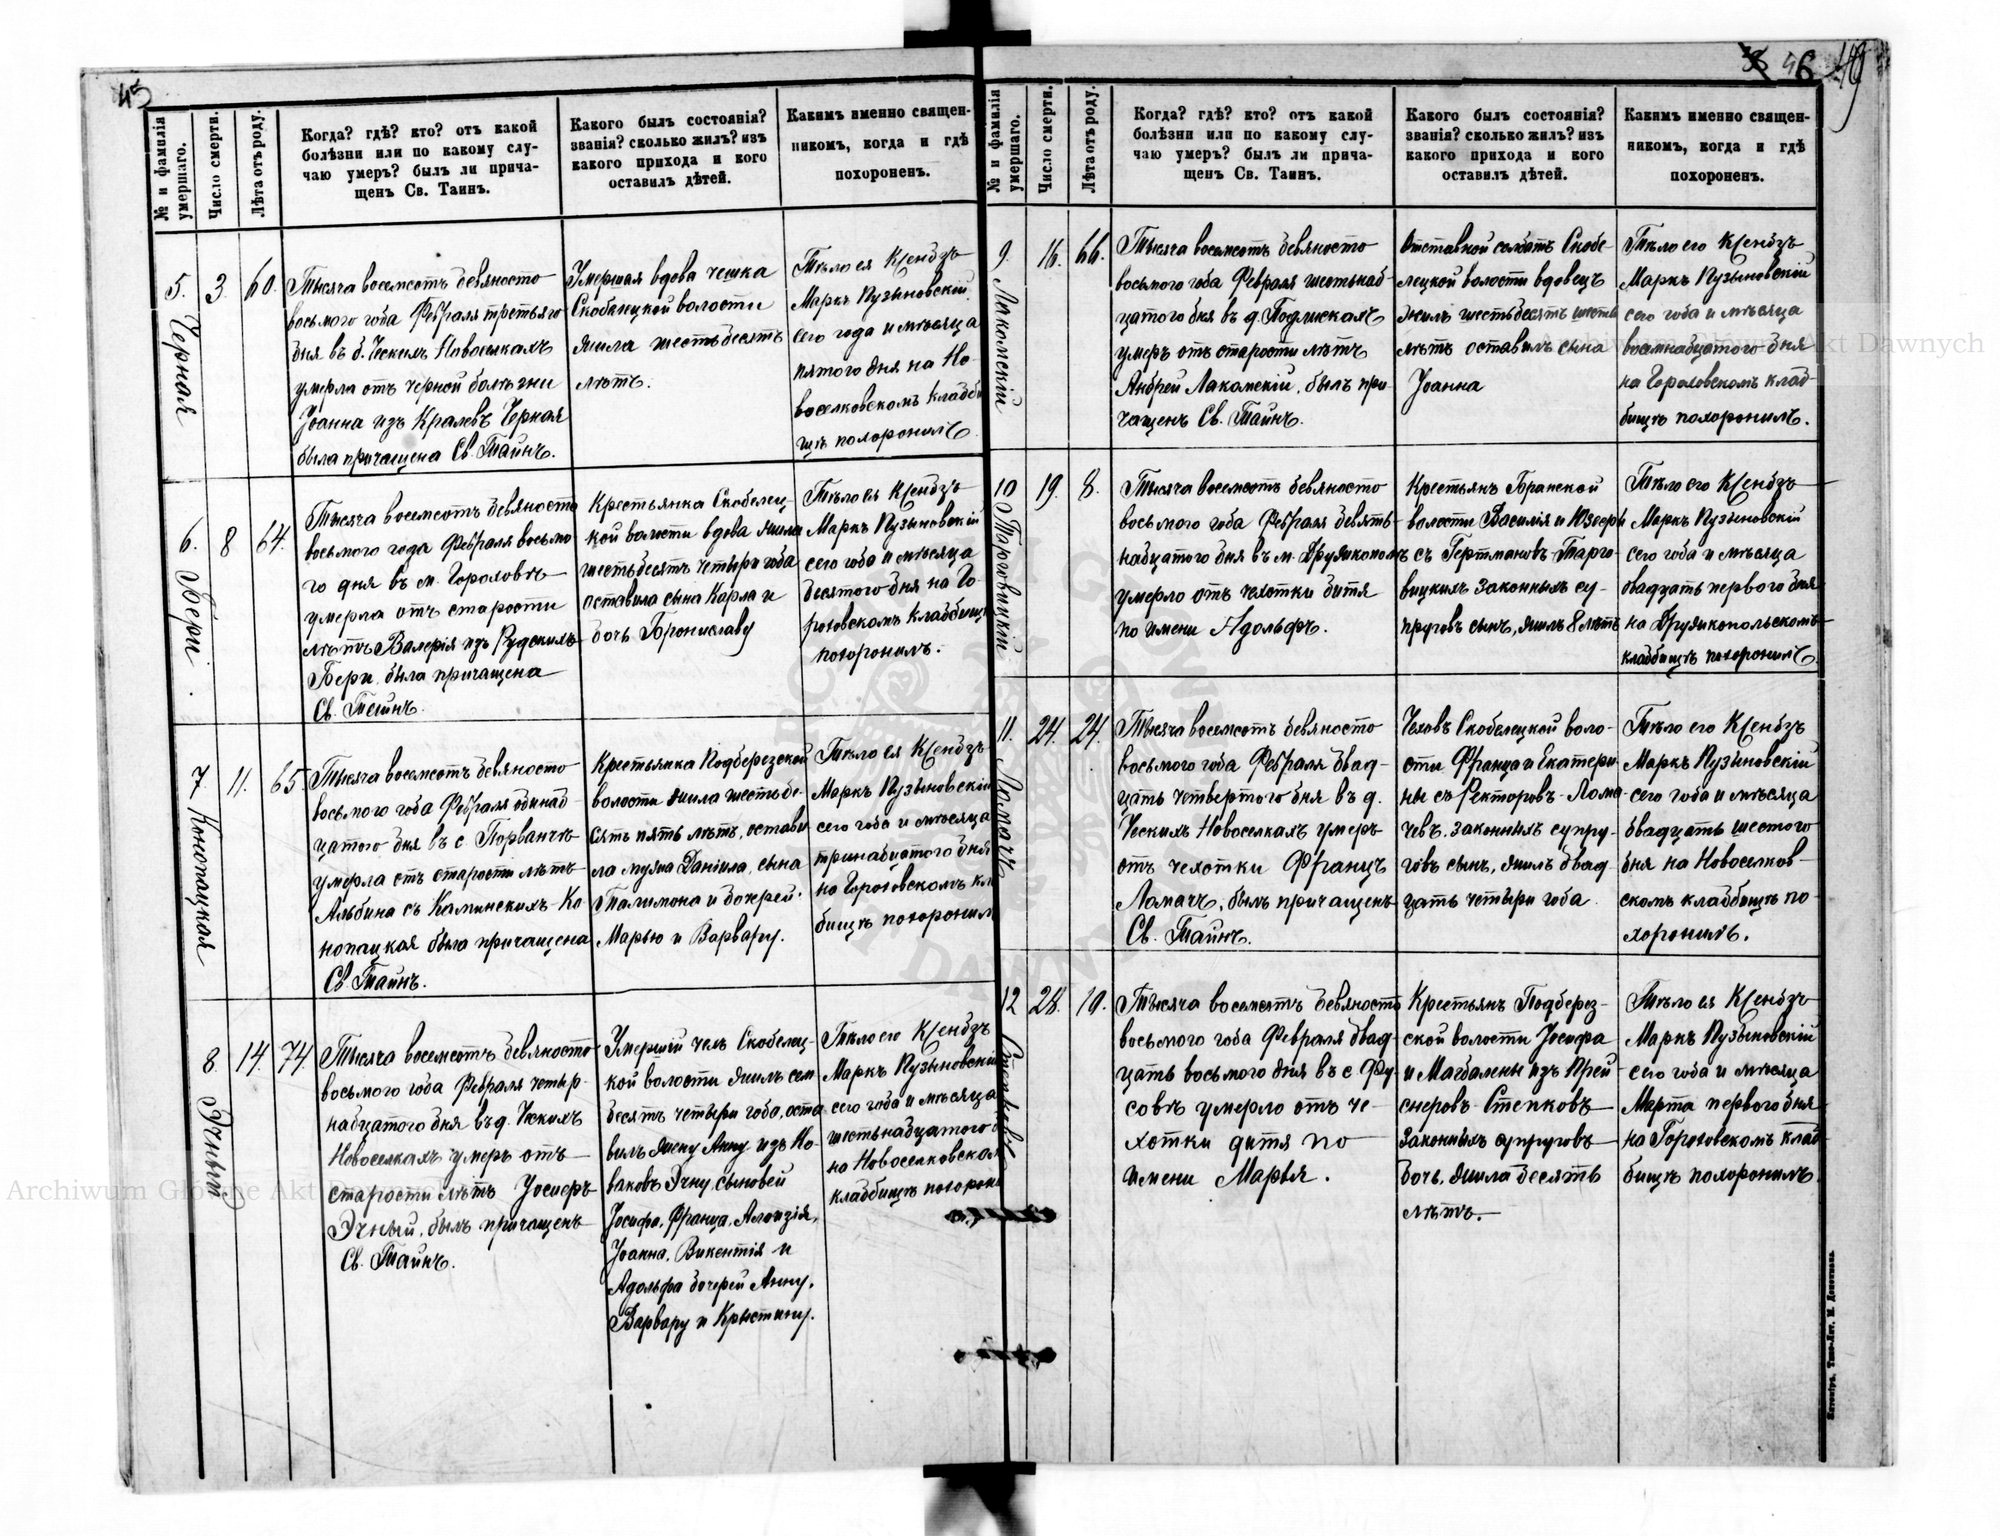 45
№ и фамилія умершаго.
Число смерти.
Лѣта отъ роду.
Когда? гдѣ? кто? отъ какой
болѣзни или по какому слу-
чаю умеръ? былъ ли прича-
щенъ Св. Таинъ.
Какого былъ состоянія?
званія? сколько жилъ? изъ
какого прихода и кого
оставилъ дѣтей.
Какимъ именно священ-
никомъ, когда и гдѣ
похороненъ.
5. Черная
3
60.
Тысяча восемсотъ девяносто
восьмого года Февраля третьяго
дня въ д. Ческихъ Новоселкахъ
умерла отъ черной болѣзни
Іоанна изъ Кралевъ Черная
была причащена Св. Таинъ.
Умершая вдова чешка
Скобелецкой волости
жила шестьдесятъ
лѣтъ.
Тѣло ея Ксендзъ
Маркъ Пузыновскій
сего года и мѣсяца
пятого дня на Но-
воселковскомъ кладби
щѣ похоронилъ.
6. Бери
8
64.
Тысяча восемсотъ девяносто
восьмого года Февраля восьмо
го дня въ м. Гороховѣ
умерла отъ старости
лѣтъ Валерія изъ Рудскихъ
Бери, была причащена
Св. Таинъ.
Крестьянка Скобелец
кой волости вдова жила
шестьдесятъ четыри года
оставила сына Карла и
дочь Брониславу
Тѣло ея Ксендзъ
Маркъ Пузыновскій
сего года и мѣсяца
десятого дня на Го-
роховскомъ кладбищѣ
похоронилъ.
7. Конопацкая
11.
65.
Тысяча восемсотъ девяносто
восьмого года Февраля одинад-
цатого дня въ с. Порванчѣ
умерла отъ старости лѣтъ
Альбина съ Каминскихъ Ко
нопацкая была причащена
Св. Таинъ.
Крестьянка Подберезской
волости жила шестьде-
сятъ пять лѣтъ, остави
ла мужа Даніила, сына
Талимона и дочерей
Марью и Варвару.
Тѣло ея Ксендзъ
Маркъ Пузыновскій
сего года и мѣсяца
тринадцатого дня
на Гороховскомъ кл
бищѣ похоронил
8 Эчный
14.
74.
Тысяча восемсотъ девяносто
восьмого года Февраля четыр-
надцатого дня въ д. Ческихъ
Новоселкахъ умеръ отъ
старости лѣтъ Іосифъ
Эчный, былъ причащенъ
Св. Таинъ.
Умершій чехъ Скобелец-
кой волости жилъ сем
десятъ четыри года, оста
вилъ жену Анну изъ Ко-
ваковъ Эчну, сыновей
Іосифа, Франца, Алоизія,
Іоанна, Викентія и
Адольфа дочерей Анну,
Варвару и Крыстину.
Тѣло его Ксендзъ
Маркъ Пузыновскій
сего года и мѣсяца
шестьнадцатого
на Новоселковском
кладбищѣ похорон
46 49
№ и фамилія умершаго.
Число смерти.
Лѣта отъ роду.
Когда? гдѣ? кто? отъ какой
болѣзни или по какому слу-
чаю умеръ? былъ ли прича-
щенъ Св. Таинъ.
Какого былъ состоянія?
званія? сколько жилъ? изъ
какого прихода и кого
оставилъ дѣтей.
Какимъ именно священ-
никомъ, когда и гдѣ
похороненъ.
9. Лакомскій
16.
66.
Тысяча восемсотъ девяносто
восьмого года Февраля шестьнад-
цатого дня въ д. Подлискахъ
умеръ отъ старости лѣтъ
Андрей Лакомскій, былъ при-
чащенъ Св. Таинъ.
Отставной солдатъ Скобе-
лецкой волости вдовецъ
жилъ шестьдесятъ шесть
лѣтъ оставилъ сына
Іоанна
Тѣло его Ксендзъ
Маркъ Пузыновскій
сего года и мѣсяца
восемнадцатого дня
на Гороховскомъ клад-
бищѣ похоронилъ.
10 Торговицкій
19.
8.
Тысяча восемсотъ девяносто
восьмого года Февраля девять-
надцатого дня въ м. Дружкополѣ
умерло отъ чехотки дитя
по имени Адольфъ.
Крестьянъ Бранской
волости Василія и Юзефы
съ Гертмановъ Торго-
вицкихъ законныхъ су-
пруговъ сынъ, жилъ 8 лѣтъ
Тѣло его Ксендзъ
Маркъ Пузыновскій
сего года и мѣсяца
двадцать первого дня
на Дружкопольскомъ
кладбищѣ похоронилъ.
11. Ломачъ
24.
24.
Тысяча восемсотъ девяносто
восьмого года Февраля двад-
цать четвертого дня въ д.
Ческихъ Новоселкахъ умеръ
отъ чехотки Францъ
Ломачъ, былъ причащенъ
Св. Таинъ.
Чеховъ Скобелецкой воло-
сти Франца и Екатери-
ны съ Ректоровъ Лома-
чевъ, законныхъ супру-
говъ сынъ, жилъ двад-
цать четыри года
Тѣло его Ксендзъ
Маркъ Пузыновскій
сего года и мѣсяца
двадцать шестого
дня на Новоселков-
скомъ кладбищѣ по-
хоронилъ.
12
28.
10.
Тысяча восемсотъ девяносто
восьмого года Февраля двад-
цать восьмого дня въ с. Фу-
совѣ умерло отъ че-
хотки дитя по
имени Марья.
Крестьянъ Подберез-
ской волости Іосифа
и Магдалены изъ Прей-
снеровъ Степковъ
законныхъ супруговъ
дочь, жила десять
лѣтъ.
Тѣло ея Ксендзъ
Маркъ Пузыновскій
сего года и мѣсяца
Марта первого дня
на Гороховскомъ клад-
бищѣ похоронилъ.
Archiwum Główne Akt Dawnych
Archiwum Główne Akt Dawnych